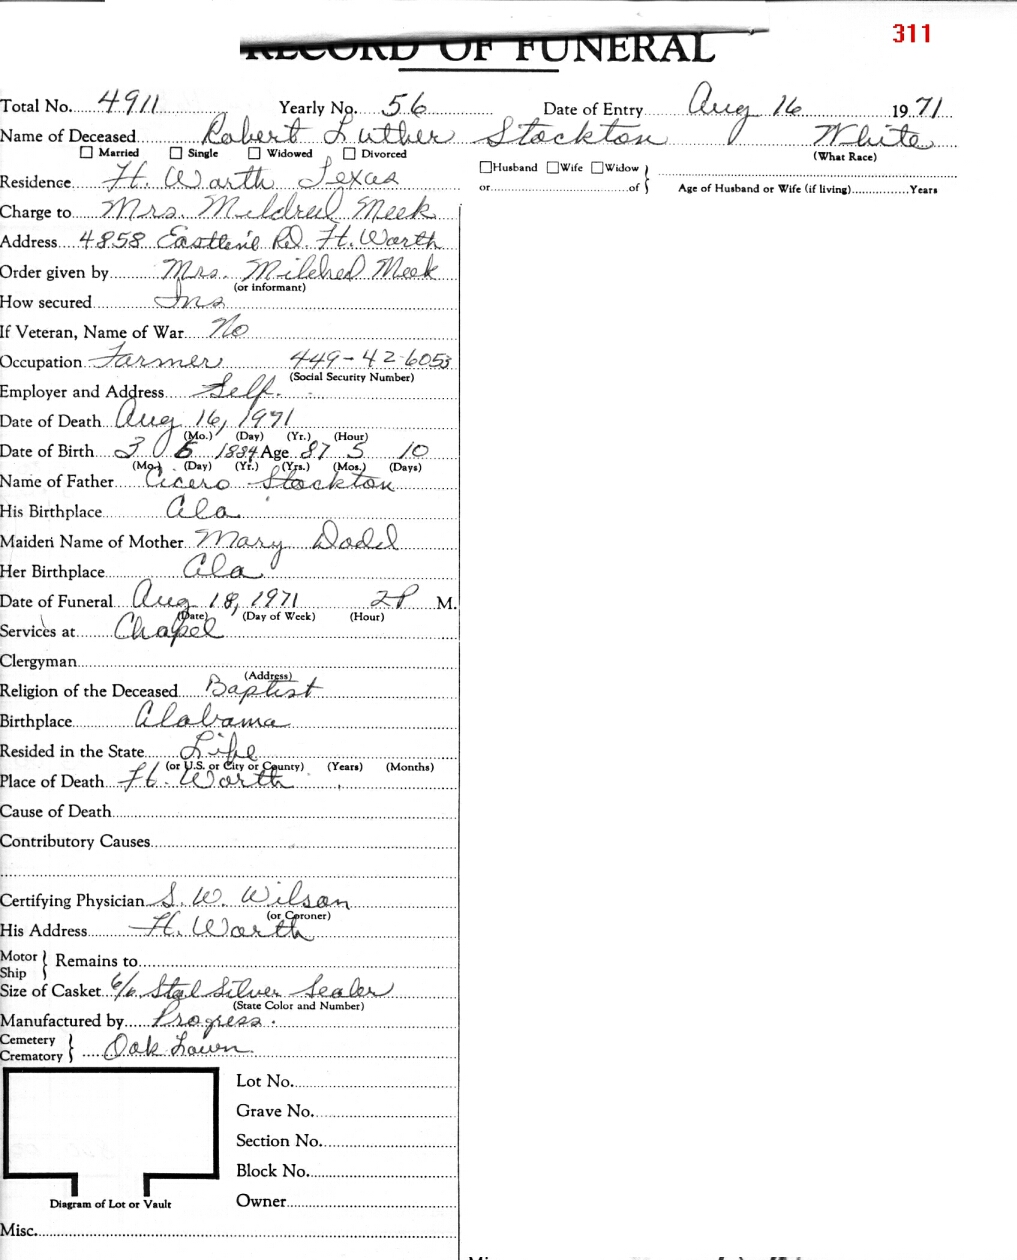 311
RECORD OF FUNERAL
Total No. 4911 Yearly No. 56 Date of Entry Aug 16 1971
Name of Deceased Robert Luther Stockton White
(What Race)
☐ Married ☐ Single ☐ Widowed ☐ Divorced
☐ Husband ☐ Wife ☐ Widow
or of
Age of Husband or Wife (if living) Years
Residence Ft. Worth Texas
Charge to Mrs. Mildred Meek
Address 4858 Eastline Rd. Ft. Worth
Order given by Mrs. Mildred Meek
(or informant)
How secured Ins
If Veteran, Name of War No
Occupation Farmer 449-42-6053
(Social Security Number)
Employer and Address Self.
Date of Death Aug 16, 1971
(Mo.) (Day) (Yr.) (Hour)
Date of Birth 3 6 1884 Age 87 5 10
(Mo.) (Day) (Yr.) (Yrs.) (Mos.) (Days)
Name of Father Cicero Stockton
His Birthplace Ala.
Maiden Name of Mother Mary Dodd
Her Birthplace Ala.
Date of Funeral Aug 18, 1971 2P M.
(Date) (Day of Week) (Hour)
Services at Chapel
Clergyman
(Address)
Religion of the Deceased Baptist
Birthplace Alabama
Resided in the State Life
(or U.S. or City or County) (Years) (Months)
Place of Death Ft. Worth
Cause of Death
Contributory Causes
Certifying Physician S. W. Wilson
(or Coroner)
His Address Ft. Worth
Motor Ship } Remains to
Size of Casket 6/6 Steel Silver Sealer
(State Color and Number)
Manufactured by Progress.
Cemetery Crematory } Oak Lawn
Lot No.
Grave No.
Section No.
Block No.
Owner
Diagram of Lot or Vault
Misc.